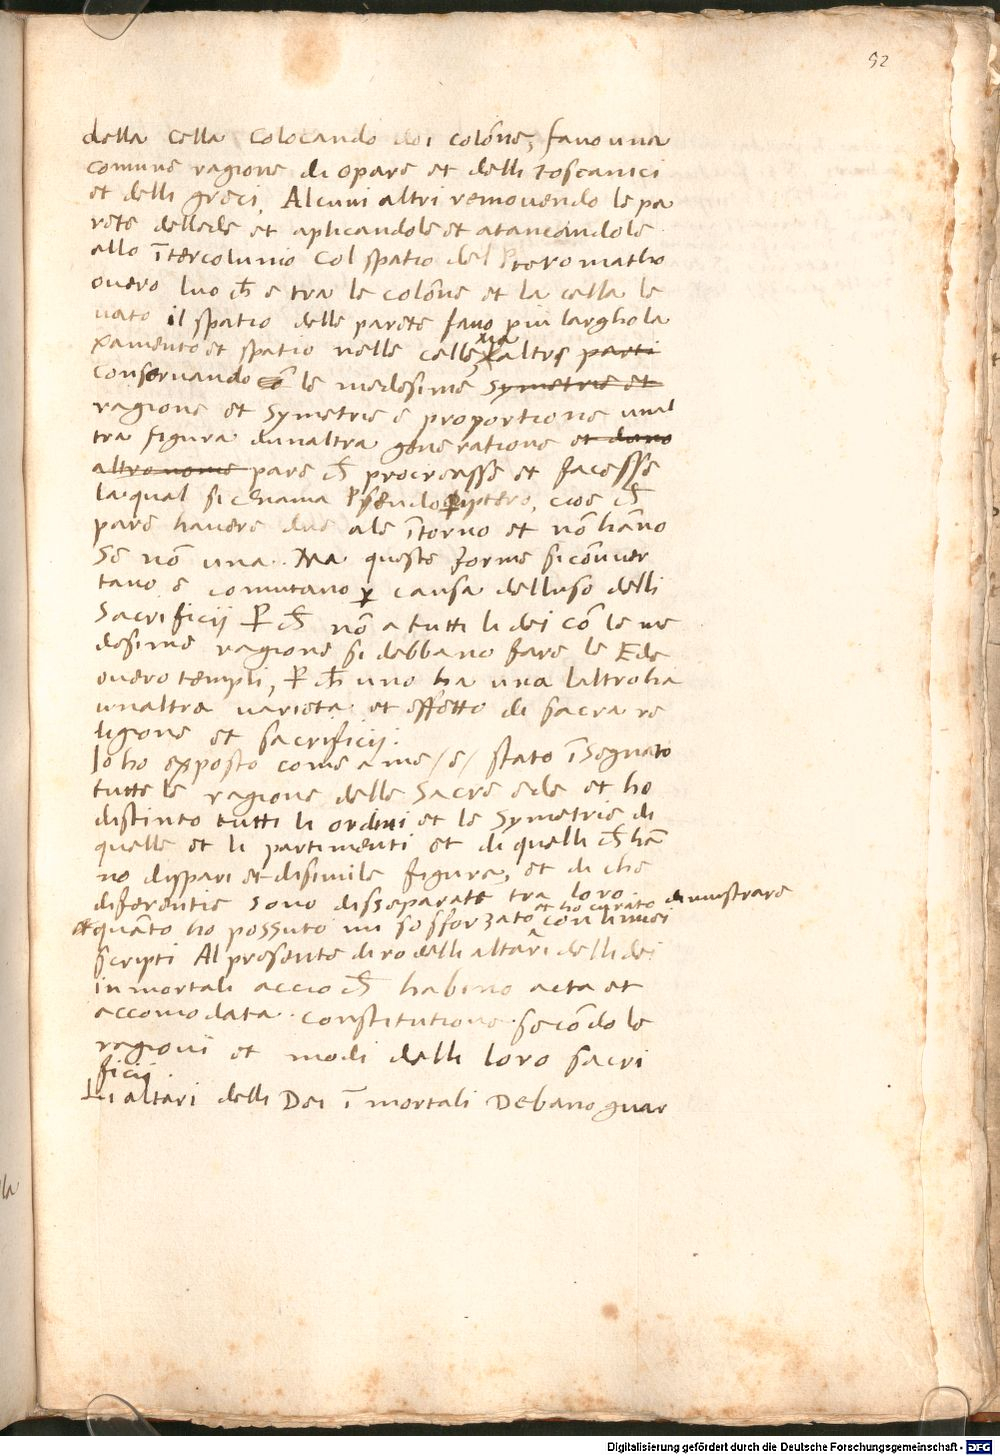 52
della cella colocando doi colōne, fano una
comune ragione di opare et delli toscanici
et delli greci, Alcuni altri removendo le pa
rete dellede et aplicandole et atancandole
allo ītercolunio col spatio del Pteromatho
overo luo ch̄ e tra le colōne et la cella le
vato il spatio delle parete fano piu largho la
xamento et spatio nelle celle, altre parti
conservando le medesime Symetrie et
ragione et Symetrie e proportione unal
tra figura dunaltra generatione et dano
altro nome pare ch̄ procreasse et facesse
la qual si chiama Pseudodiptero, cioe ch̄
pare havere due ale ītorno et nō hāno
se nō una. Ma queste forme si cōnver
tano e comutano ꝑ causa delluso delli
Sacrificij ꝑ ch̄ nō a tutti li dei cō le me
desime ragione si debbano fare le Ede
overo templi, ꝑ ch̄ uno ha una laltro ha
unaltra varieta et effetto di sacra re
ligione et sacrificij.
Io ho exposto come a me /e/ stato īsegnato
tutte le ragione delle Sacre ede et ho
distinto tutti li ordini et le Symetrie di
quelle et li partimenti et di quelli ch̄ hā
no dispari et disimile figure, et di che
diferentie sono disseparate tra loro
et ho curato dimustrare
quāto ho possuto mi so sforzato con li miei
scripti Al presente diro delli altari delli dei
inmortali accio ch̄ habino acta et
accomodata constitutione secōdo le
ragioni et modi delli loro sacri
ficij.
Li altari delli Dei īmortali Debano guar
Digitalisierung gefördert durch die Deutsche Forschungsgemeinschaft - DFG